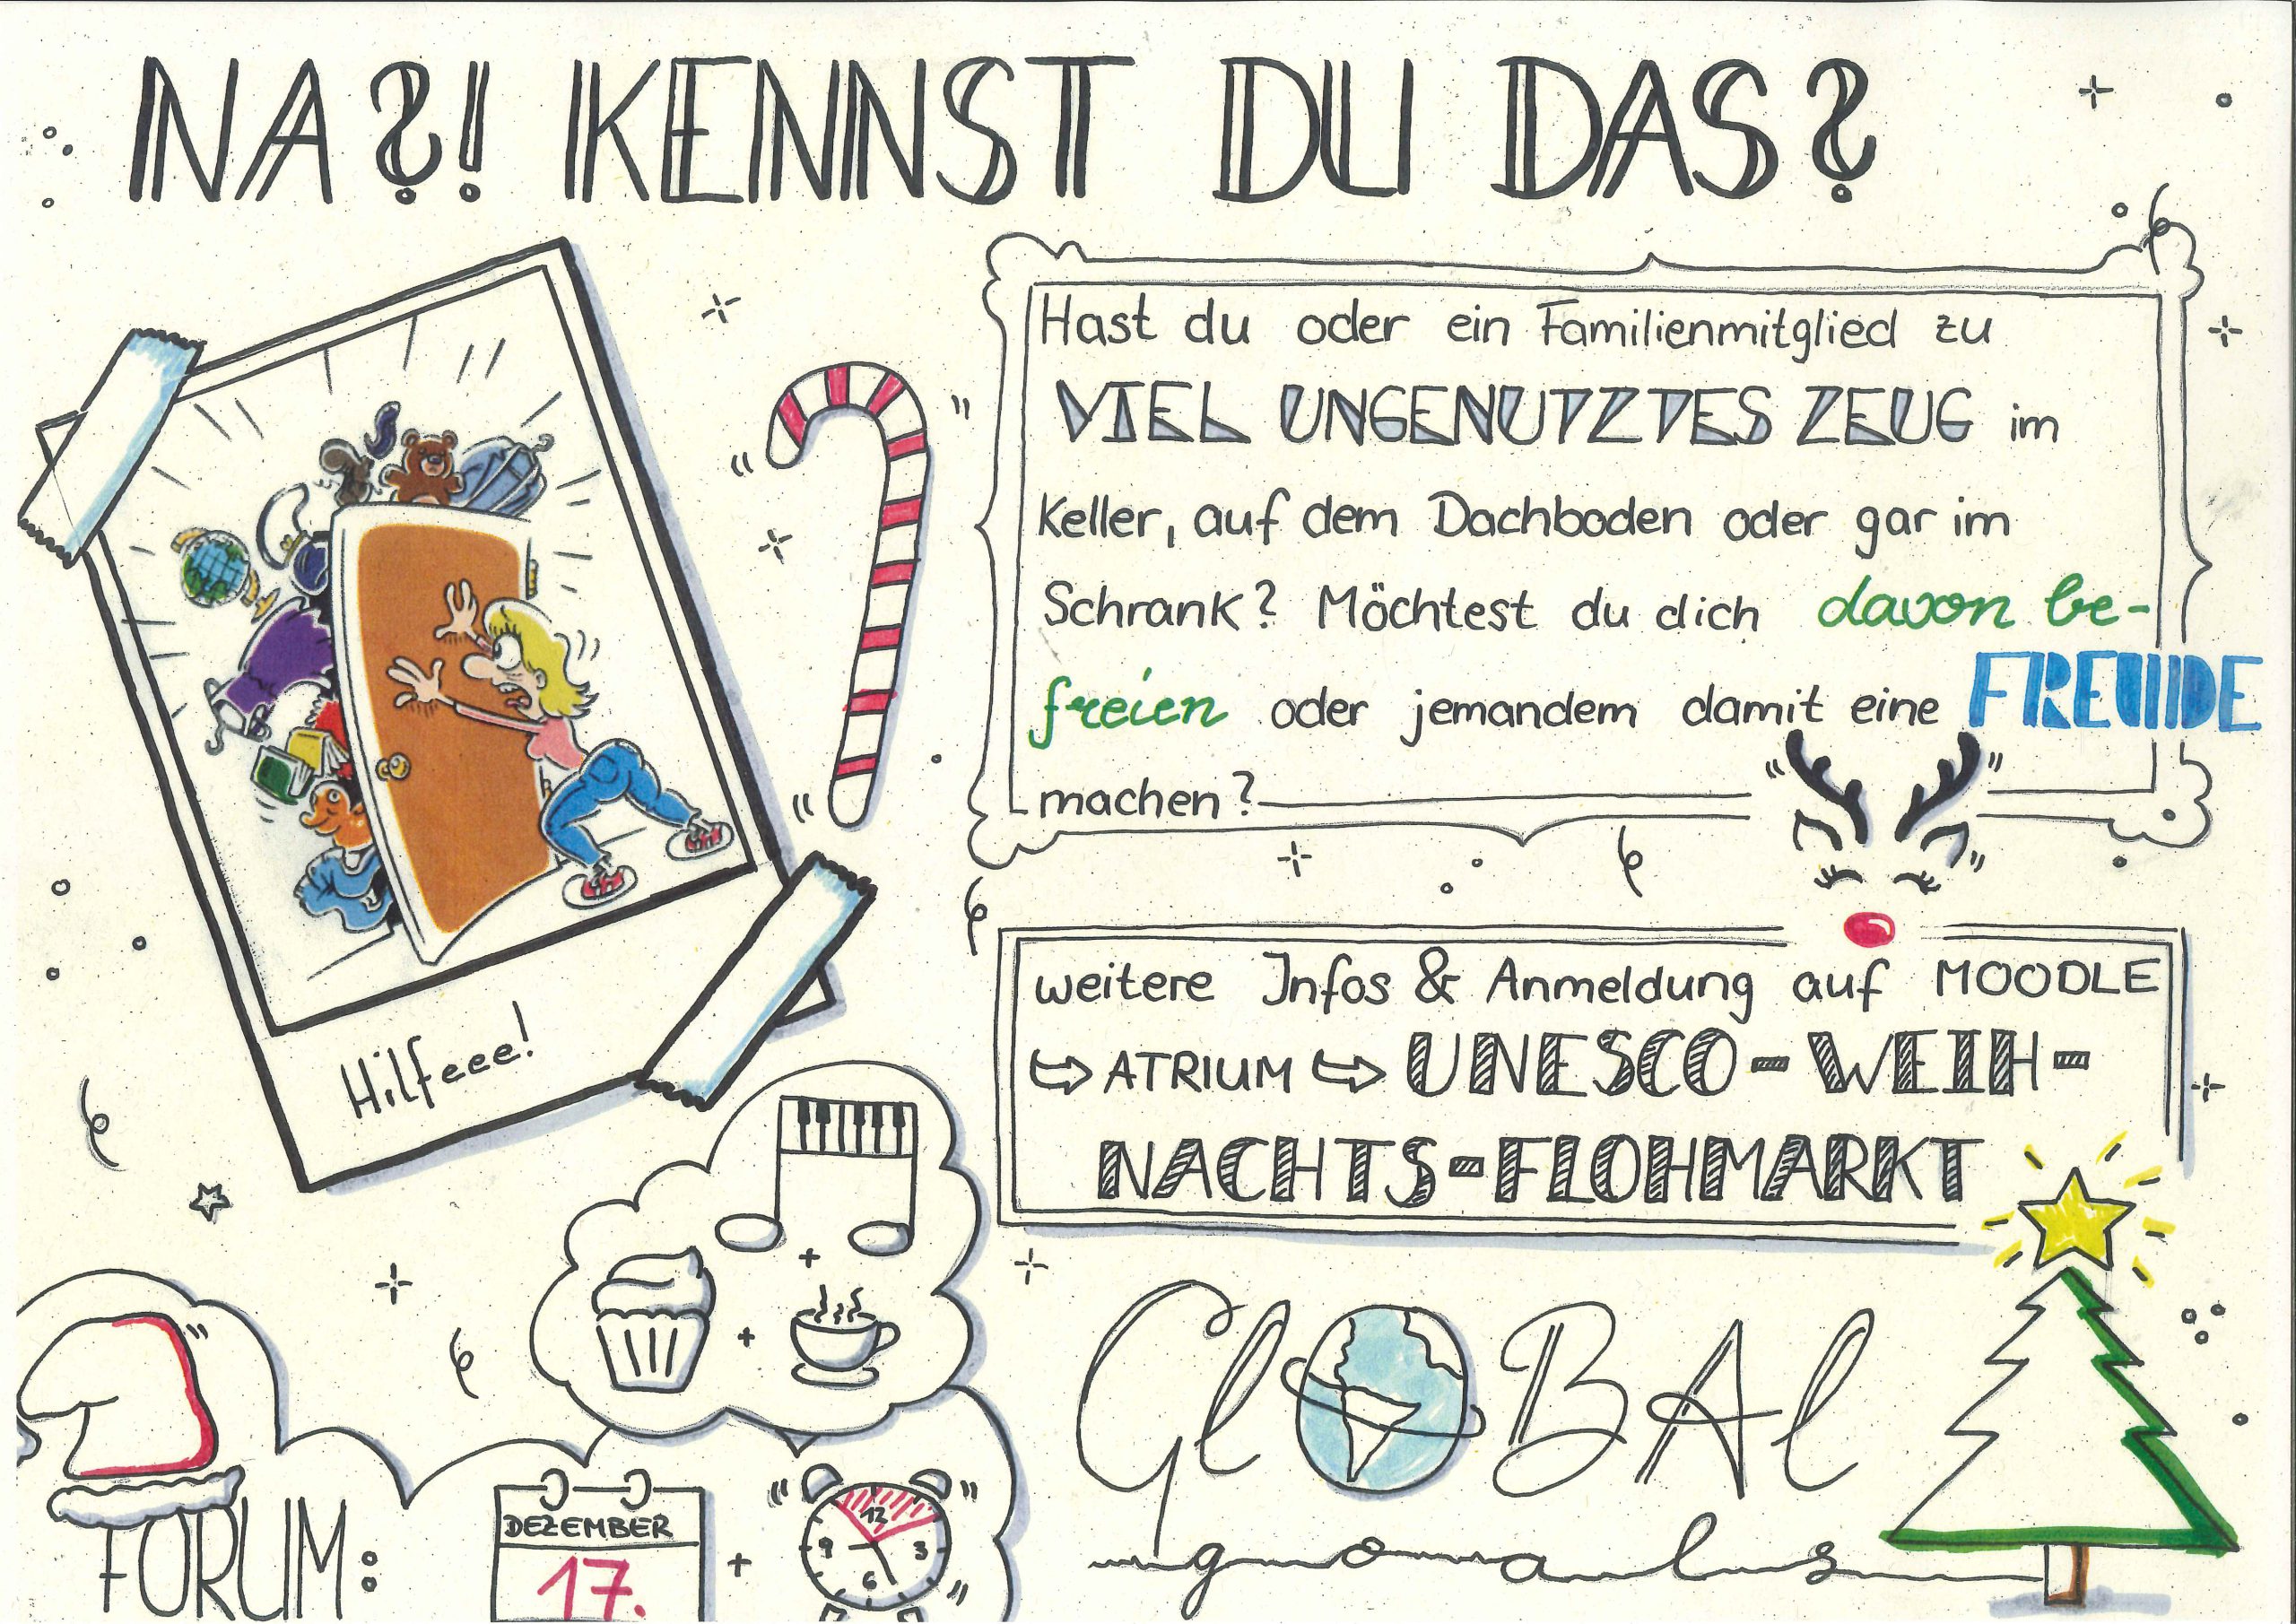 NA?! KENNST DU DAS?
Hast du oder ein Familienmitglied zu
VIEL UNGENUTZTES ZEUG im
Keller, auf dem Dachboden oder gar im
Schrank? Möchtest du dich davon be-
freien oder jemandem damit eine FREUDE
machen?
Hilfeee!
weitere Infos & Anmeldung auf MOODLE
↪ ATRIUM ↪ UNESCO-WEIH-
NACHTS-FLOHMARKT
GlOBAl
goals
FORUM:
DEZEMBER
17.
+
12
9 3
6